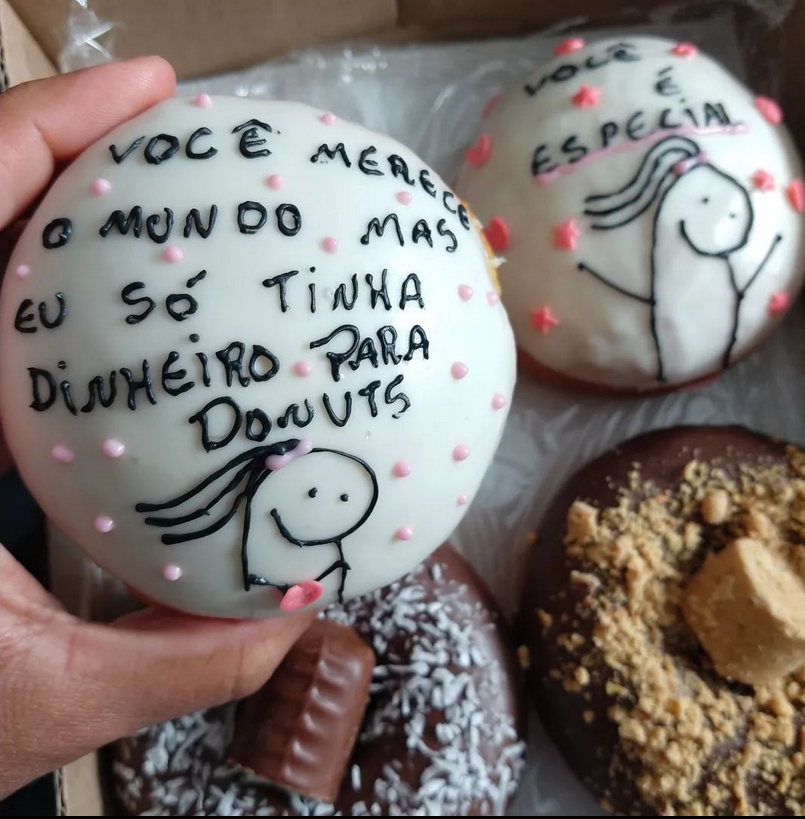 VOCÊ MERECE
O MUNDO MAS
EU SÓ TINHA
DINHEIRO PARA
DONUTS
VOCÊ
É
ESPECIAL